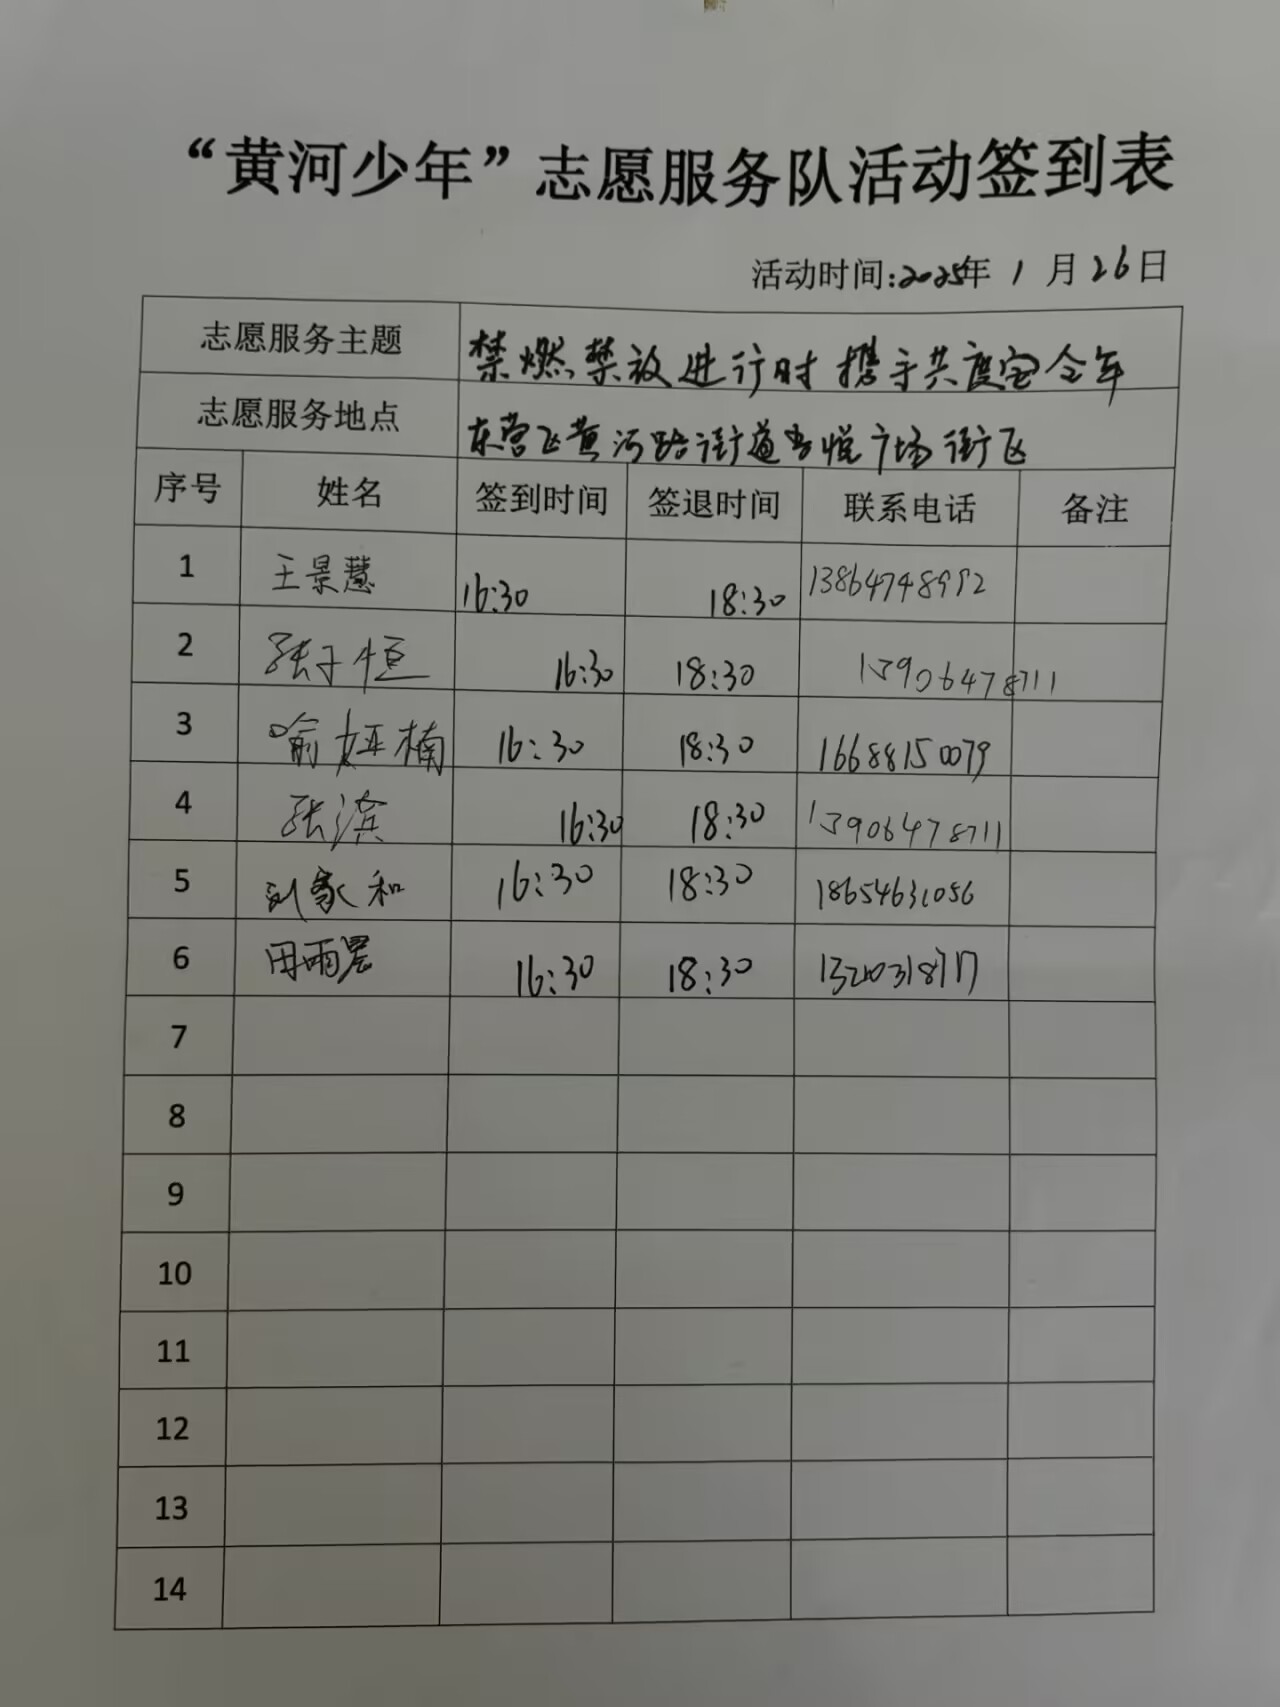 “黄河少年”志愿服务队活动签到表
活动时间:2025年 1 月 26 日
志愿服务主题 禁燃禁放进行时 携手共度安全年
志愿服务地点 东营区黄河路街道吾悦广场街区
序号 姓名 签到时间 签退时间 联系电话 备注
1 王景慧 16:30 18:30 13864748992
2 张子恒 16:30 18:30 13906478711
3 喻娅楠 16:30 18:30 16688150079
4 张滨 16:30 18:30 13906478711
5 刘家和 16:30 18:30 18654631056
6 田雨 16:30 18:30
7
8
9
10
11
12
13
14